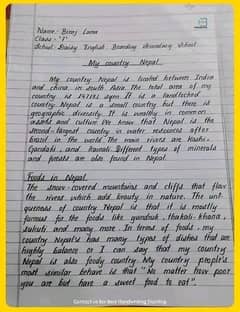 Name:- Biraj Lama
Class:- "7"
School:- Daisy English Boarding Secondary School
My country Nepal
My country Nepal is located between India
and china, in south Asia. The total area of my
country is 147181 sq.m. It is a landlocked
country. Nepal is a small country but there is
geographic diversity. It is wealthy in common
assets and culture. We know that Nepal is the
second-largest country in water resources after
brazil in the world. The main rivers are Koshi,
Gandaki, and Karnali. Different types of minerals
and forests are also found in Nepal.
Foods in Nepal
The snow-covered mountains and cliffs that flow
the rivers which add beauty in nature. The uni-
queness of country Nepal is that it is mostly
famous for the foods like gundruk, thakali khana,
sukuti and many more. In terms of foods, my
country Nepal's has many types of dishes that are
highly balance or I can say that my country
Nepal is also foody country. My country people's
most similar behave is that "No matter how poor
you are but have a sweet food to eat".
Contact us for Best Handwriting